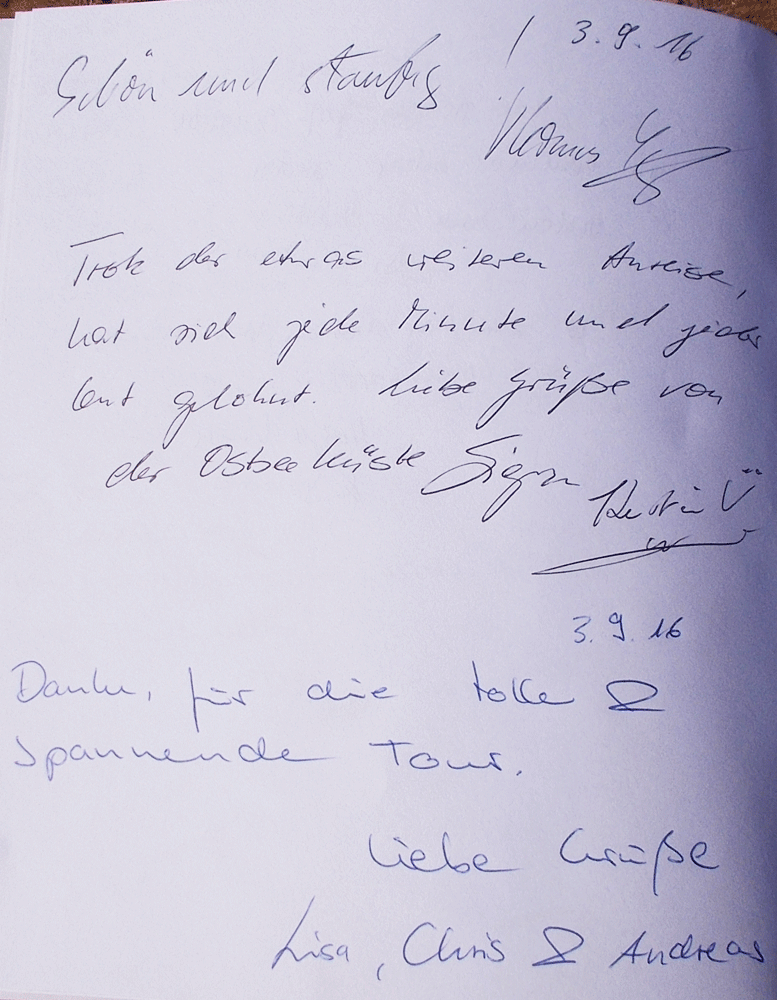 3.9.16
Schön und staubig!
Thomas
Trotz der etwas weiteren Anreise,
hat sich jede Minute und jeder
Cent gelohnt. Liebe Grüße von
der Ostseeküste
3.9.16
Danke, für die tolle &
spannende Tour.
Liebe Grüße
Lisa, Chris & Andreas